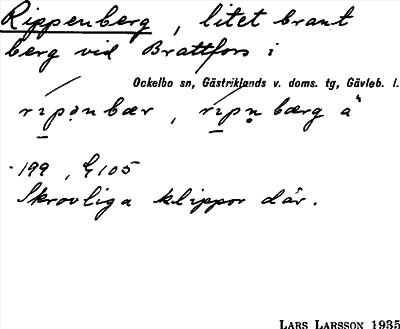 Rippenberg, litet brant
berg vid Brattfors i
Ockelbo sn, Gästriklands v. doms. tg, Gävleb. l.
rɪpənbær, rɪpn̥ bærg a
199, G 105
Skrovliga klippor där.
LARS LARSSON 1935